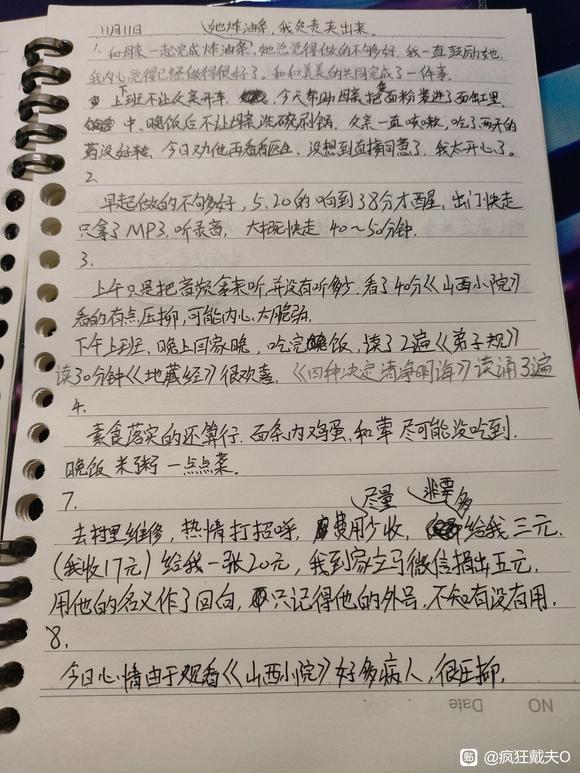 11月11日 她炸油条，我负责夹出来。
1. 和母亲一起完成炸油条，她总觉得做的不够好，我一直鼓励她，
我内心觉得已经做得很好了。和和美美的共同完成了一件事。
下
上班不让父亲开车，今天帮助母亲把面粉装进了面缸里，
中，晚饭后不让母亲洗碗刷锅，父亲一直咳嗽，吃了两天的
药没好转，今日劝他再看看医生，没想到直接同意了，我太开心了。
2.
早起做的不够好，5.20的响到38分才醒，出门快走
只拿了MP3.听录音，大概快走40～50分钟.
3.
上午只是把音频拿来听，并没有听多少，看了40分《山西小院》
看的有点压抑，可能内心太脆弱.
下午上班，晚上回家晚，吃完晚饭，读了2遍《弟子规》
读30分钟《地藏经》很欢喜，《四种决定清净明诲》读诵3遍
4.
素食落实的还算行.面条内鸡蛋，和荤尽可能没吃到.
晚饭米粥一点点菜。
7.
尽量 非要多
去村里维修，热情打招呼，费用少收，给我三元.
(我收17元）给我一张20元，我到家立马微信捐出五元.
用他的名义作了回向，只记得他的外号，不知有没有用.
8.
今日心情由于观看《山西小院》好多病人，很压抑.
NO Date
贴 @疯狂戴夫O